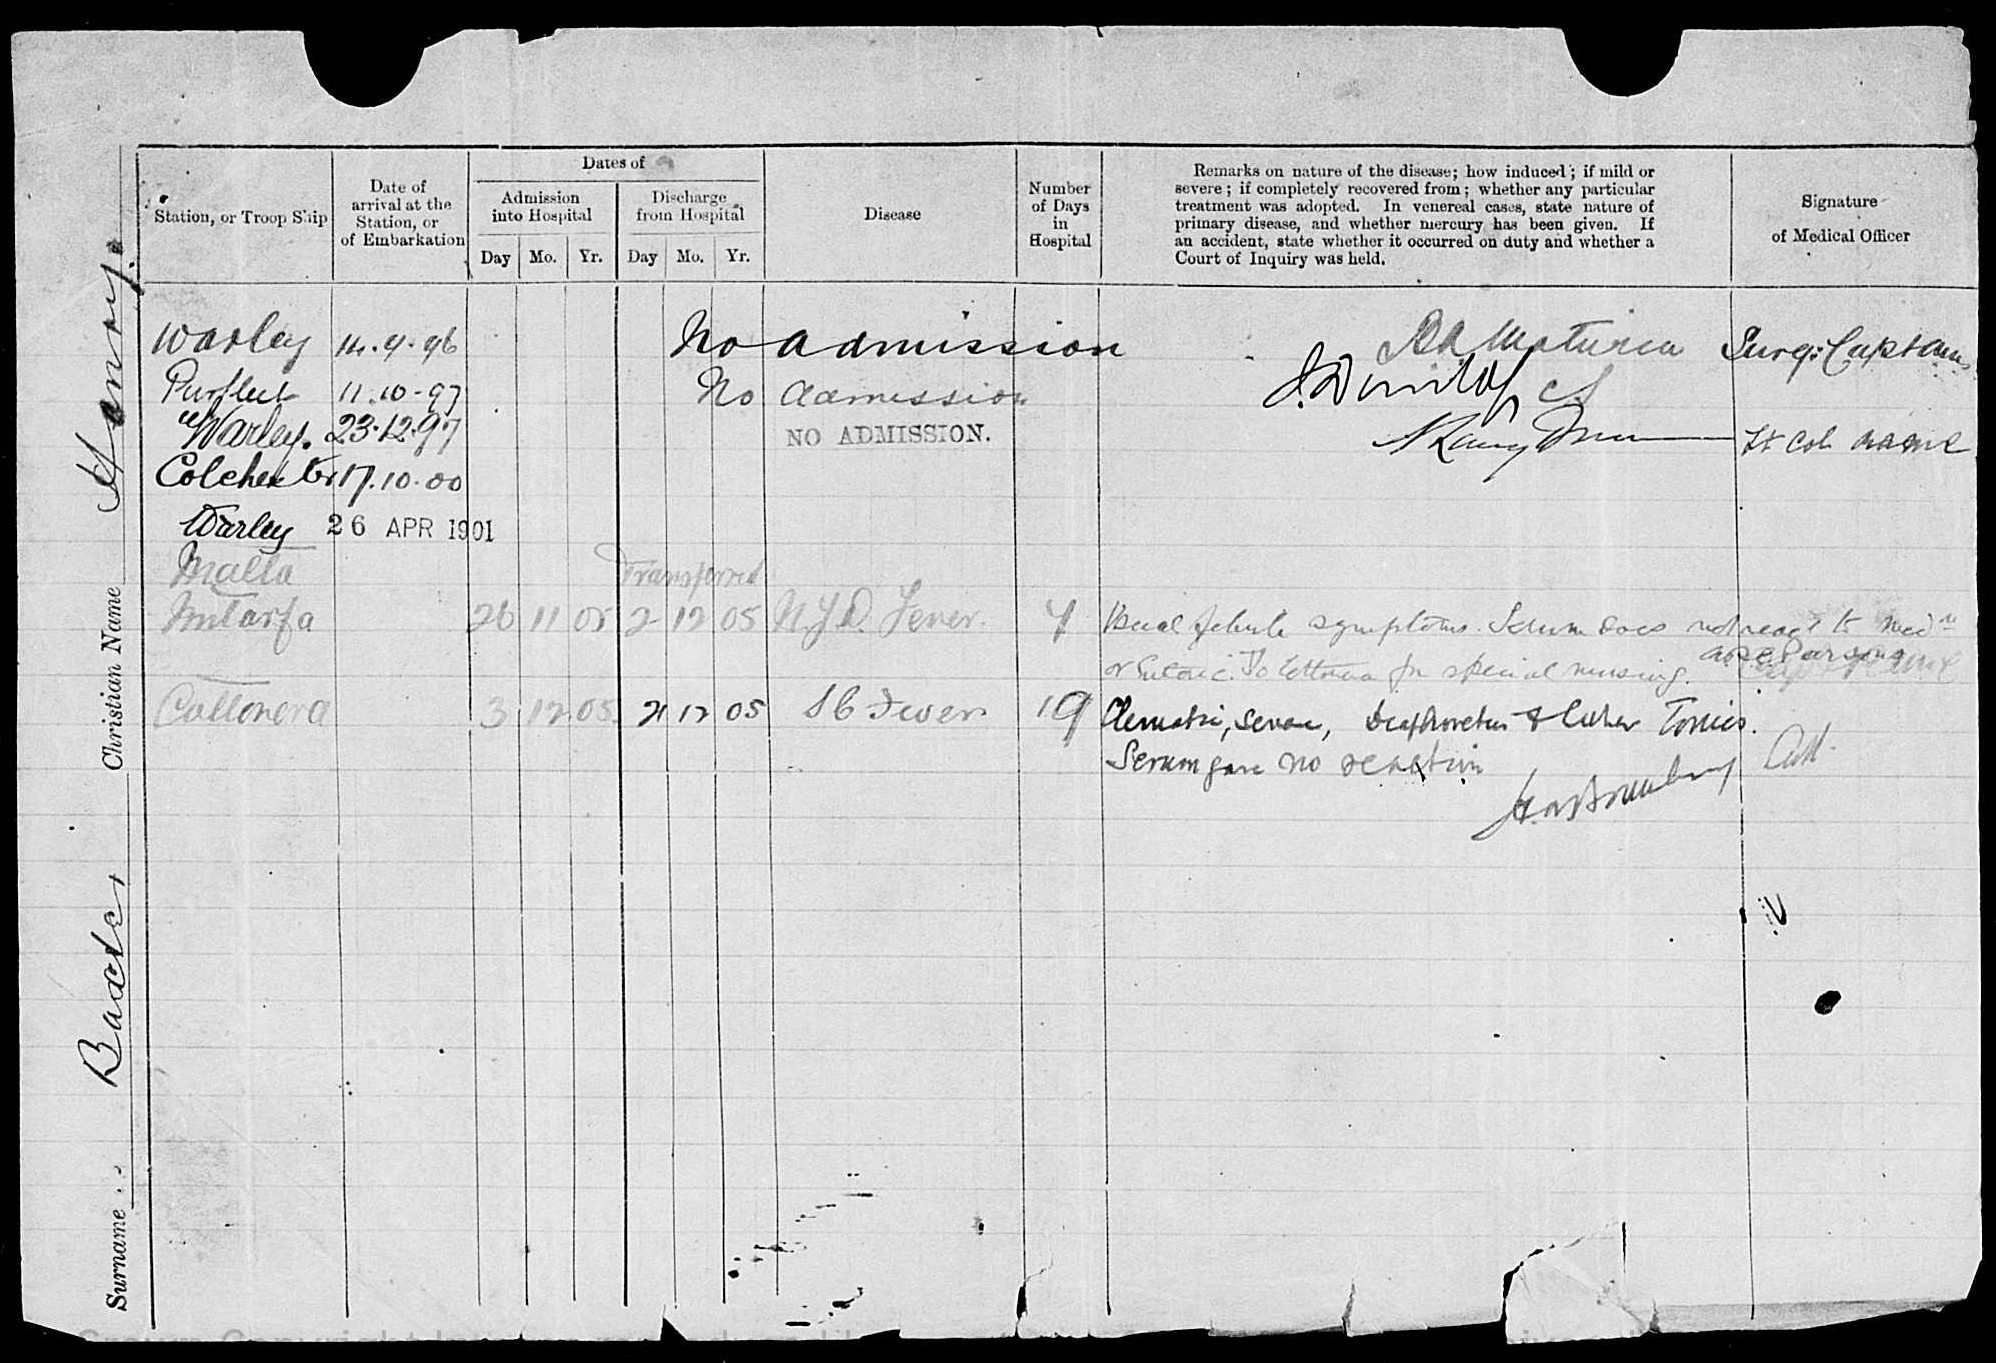 Dates of
Station, or Troop Ship
Date of
arrival at the
Station, or
of Embarkation
Admission
into Hospital
Discharge
from Hospital
Day Mo. Yr. Day Mo. Yr.
Disease
Number
of Days
in
Hospital
Remarks on nature of the disease; how induced; if mild or
severe; if completely recovered from; whether any particular
treatment was adopted. In venereal cases, state nature of
primary disease, and whether mercury has been given. If
an accident, state whether it occurred on duty and whether a
Court of Inquiry was held.
Signature
of Medical Officer
Warley 14.9.96 No admission Surg: Captain
Purfleet 11.10.97 No admission
Warley. 23.12.97 NO ADMISSION. Lt Col RAMC
Colchester 17.10.00
Warley 26 APR 1901
Malta Transferred
Mtarfa 26 11 05 2 12 05 N.Y.D. Fever. 7 Usual febrile symptoms. Serum does not react to Med
or Enteric. To Cottonera for special nursing. Parsons
Cottonera 3 12 05 21 12 05 S C Fever 19 severe, & later Tonics.
Serum gave no reaction
Surname Baxter
Christian Name Harry.